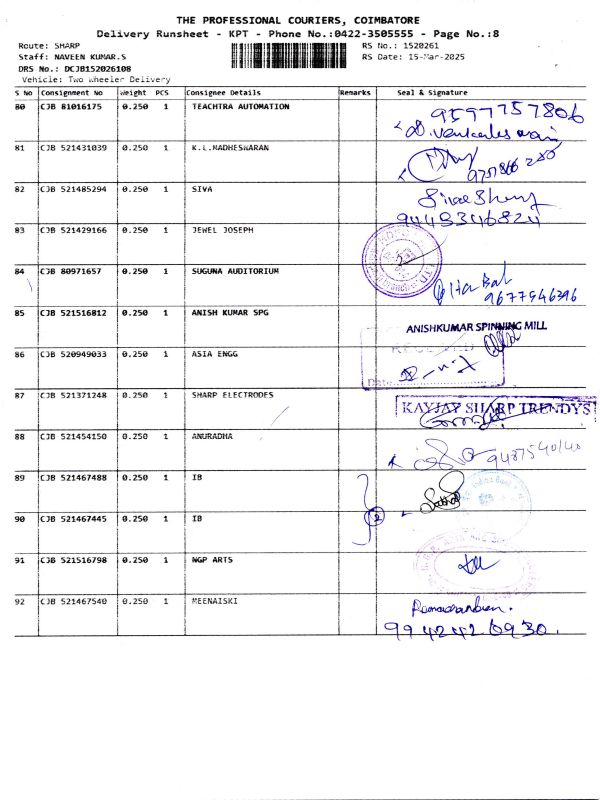 THE PROFESSIONAL COURIERS, COIMBATORE
Delivery Runsheet - KPT - Phone No.:0422-3505555 - Page No.:8
Route: SHARP RS No.: 1520261
Staff: NAVEEN KUMAR.S RS Date: 15-Mar-2025
DRS No.: DCJB152026108
Vehicle: Two Wheeler Delivery
S No Consignment No Weight PCS Consignee Details Remarks Seal & Signature
80 CJB 81016175 0.250 1 TEACHTRA AUTOMATION 9597757806
81 CJB 521431039 0.250 1 K.L.MADHESWARAN
82 CJB 521485294 0.250 1 SIVA
9448346824
83 CJB 521429166 0.250 1 JEWEL JOSEPH
84 CJB 80971657 0.250 1 SUGUNA AUDITORIUM
9677546396
85 CJB 521516812 0.250 1 ANISH KUMAR SPG ANISHKUMAR SPINNING MILL
86 CJB 520949033 0.250 1 ASIA ENGG RECEIVED
Date
87 CJB 521371248 0.250 1 SHARP ELECTRODES KAYJAY SHARP TRENDYS
88 CJB 521454150 0.250 1 ANURADHA 9487540140
89 CJB 521467488 0.250 1 IB
90 CJB 521467445 0.250 1 IB 2
91 CJB 521516798 0.250 1 NGP ARTS
92 CJB 521467540 0.250 1 MEENAISKI
9942426930.